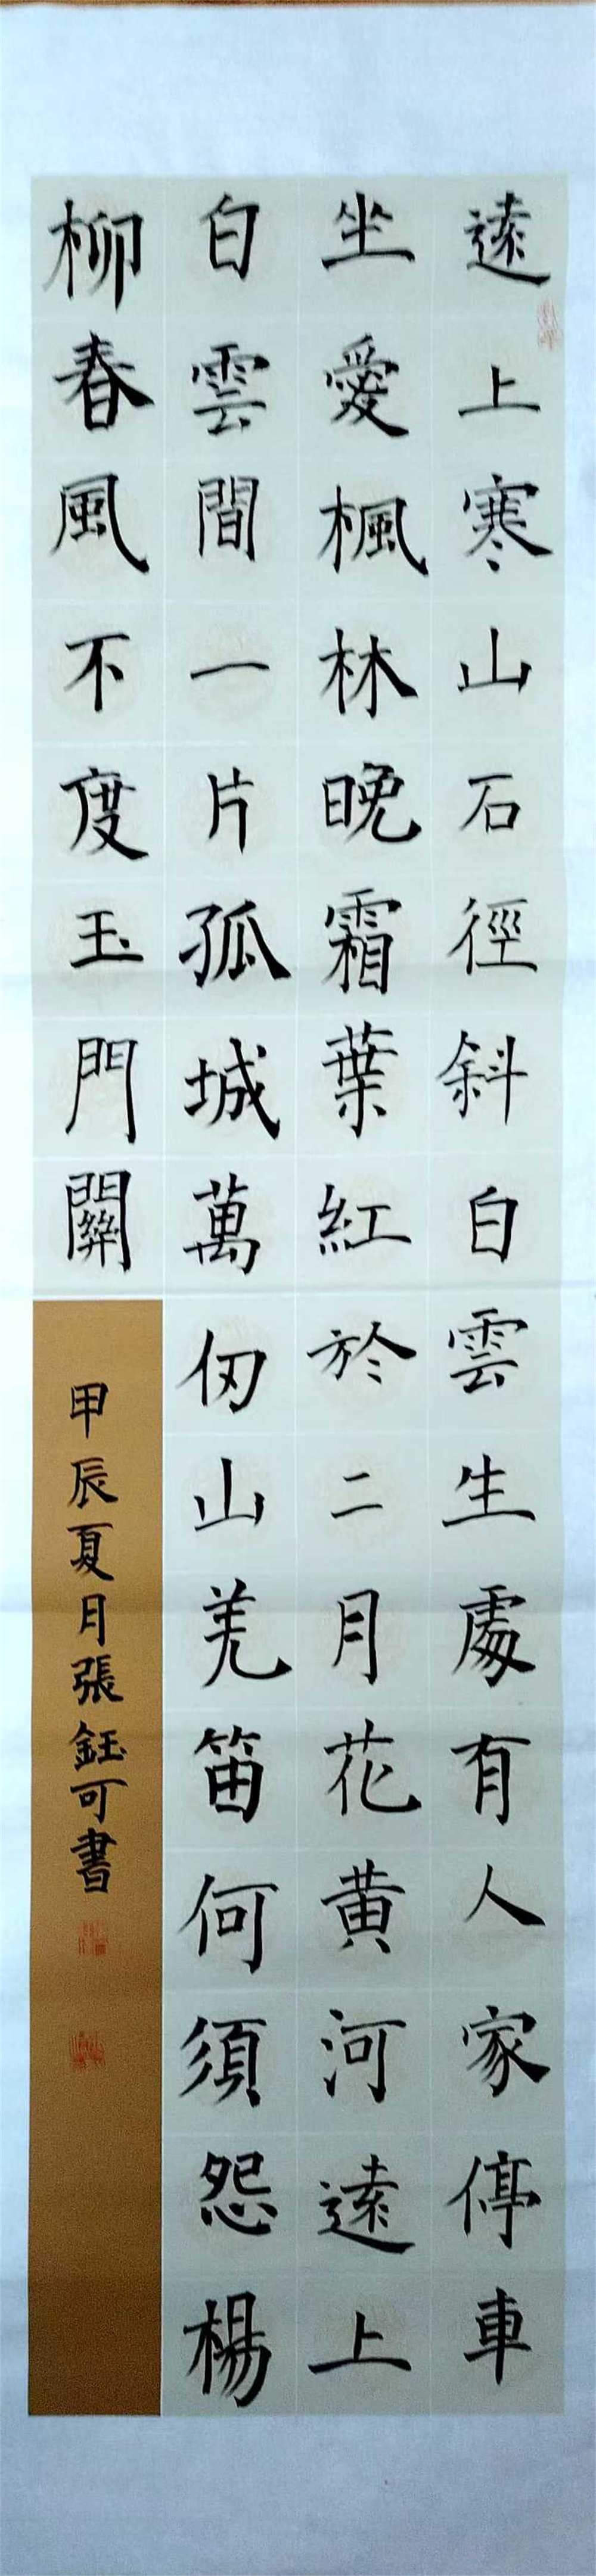 遠上寒山石徑斜白雲生處有人家停車
坐愛楓林晚霜葉紅於二月花黃河遠上
白雲間一片孤城萬仞山羌笛何須怨楊
柳春風不度玉門關
甲辰夏月張鈺可書